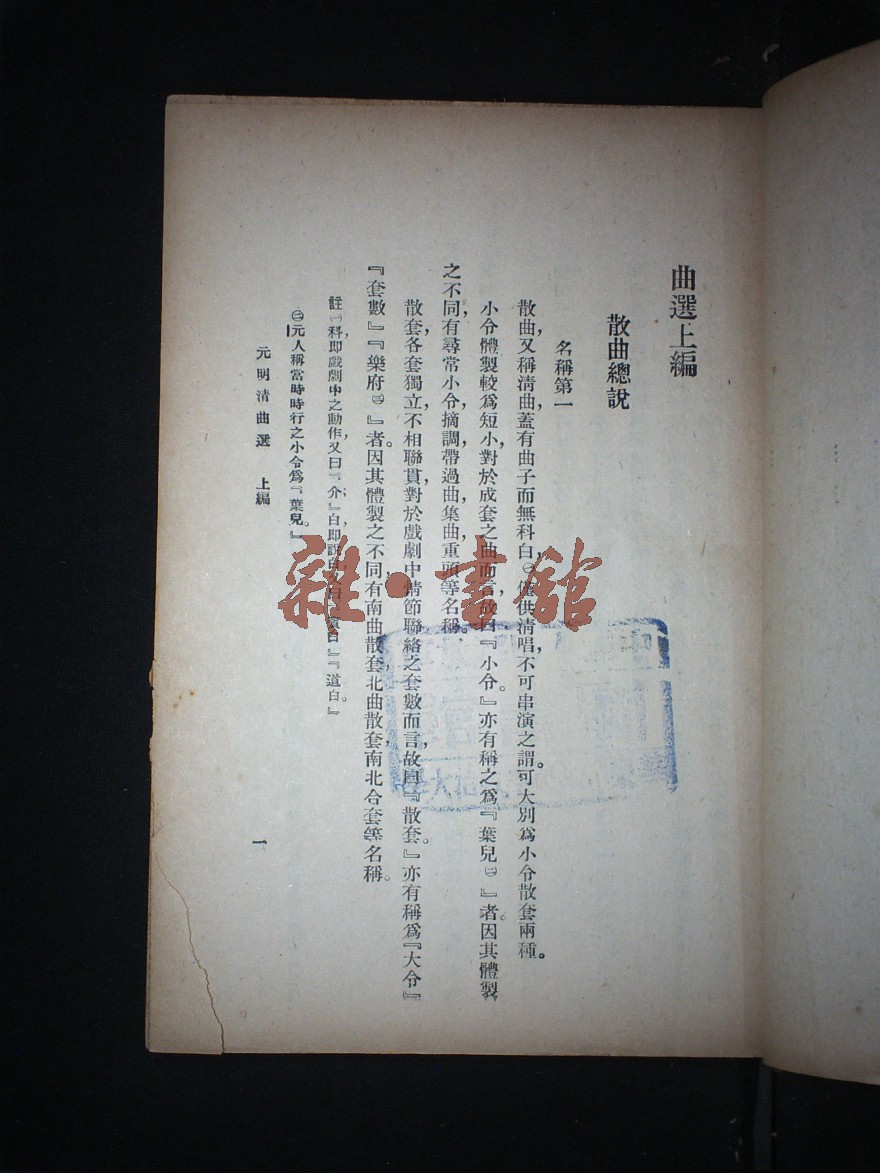 曲選上編
散曲總說
名稱第一
散曲,又稱淸曲,蓋有曲子而無科白㊀,僅供淸唱,不可串演之謂。可大別爲小令散套兩種。
小令體製較爲短小,對於成套之曲而言,故曰『小令。』亦有稱之爲『葉兒㊁』者。因其體製
之不同,有尋常小令,摘調,帶過曲,集曲,重頭等名稱。
散套,各套獨立,不相聯貫,對於戲劇中情節聯絡之套數而言,故曰『散套。』亦有稱爲『大令』
『套數』『樂府㊂』者。因其體製之不同,有南曲散套,北曲散套,南北合套等名稱。
註㊀科即戲劇中之動作,又曰『介;』白即說白,又曰『賓白』『道白。』
㊁元人稱當時時行之小令爲『葉兒。』
元明清曲選 上編
一
雜·書館